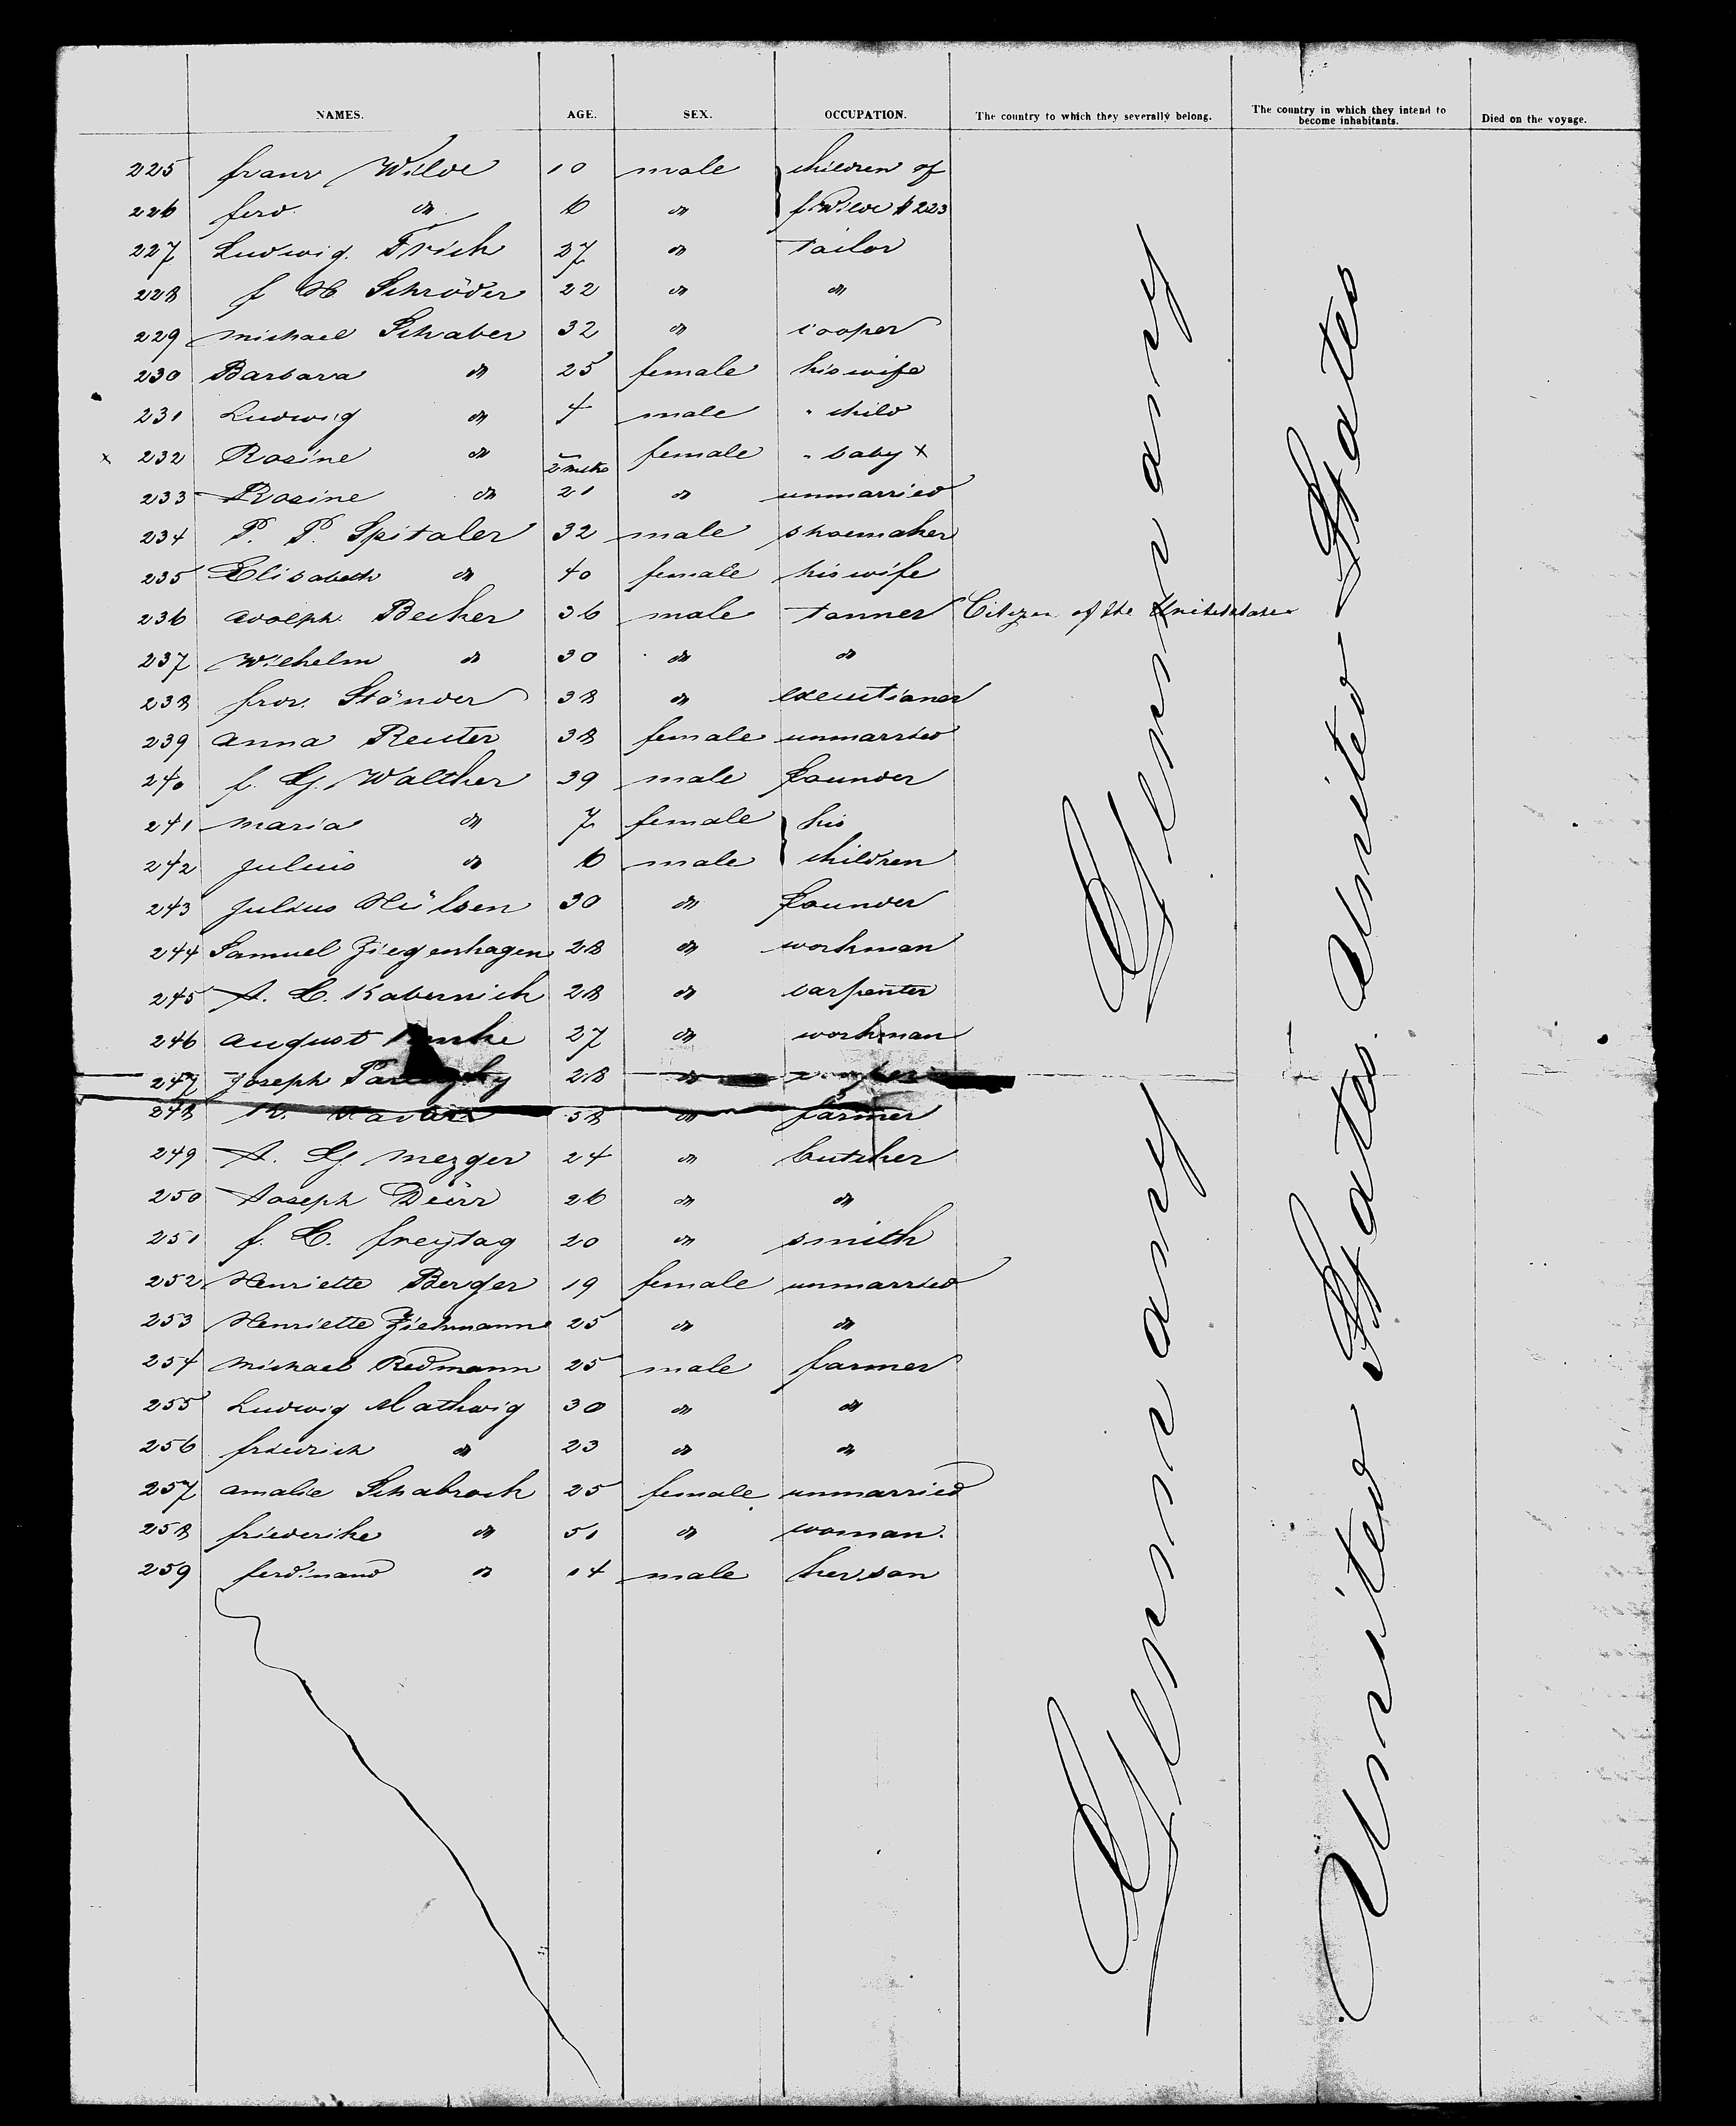 NAMES. AGE. SEX. OCCUPATION. The country to which they severally belong. The country in which they intend to become inhabitants. Died on the voyage.
225 franz Wilde 10 male children of
226 ferd. do 6 do f. Wilde # 223
227 Ludwig Frich 27 do tailor
228 f H Schröder 22 do do
229 michael Schaber 32 do cooper
230 Barbara do 25 female his wife
231 Ludwig do 4 male " child
x 232 Rosine do 2 mths female " baby x
233 Rosine do 21 do unmarried
234 P. P. Spitaler 32 male shoemaker
235 Elisabeth do 40 female his wife
236 adolph Becker 36 male tanner Citizen of the Unitedstates
237 Wilhelm do 30 do do
238 frdr. Ständer 38 do executioner
239 anna Reuter 38 female unmarried
240 f. G. Walther 39 male founder
241 maria do 7 female his
242 julius do 6 male children
243 julius Hülsen 30 do founder
244 Samuel Ziegenhagen 28 do workman
245 A. C. Kabernick 28 do carpenter
246 august 27 do workman
247 joseph 28 do
248 38 do farmer
249 A. G mezger 24 do butcher
250 Joseph Dürr 26 do do
251 f. C. freytag 20 do smith
252 Henriette Berger 19 female unmarried
253 Henriette Ziehmann 25 do do
254 michael Redmann 25 male farmer
255 Ludwig Mathwig 30 do do
256 friedrich do 23 do do
257 amalie Schabrock 25 female unmarried
258 friederike do 51 do woman.
259 ferdinand do 14 male her son
Germany
Germany
United States.
United States